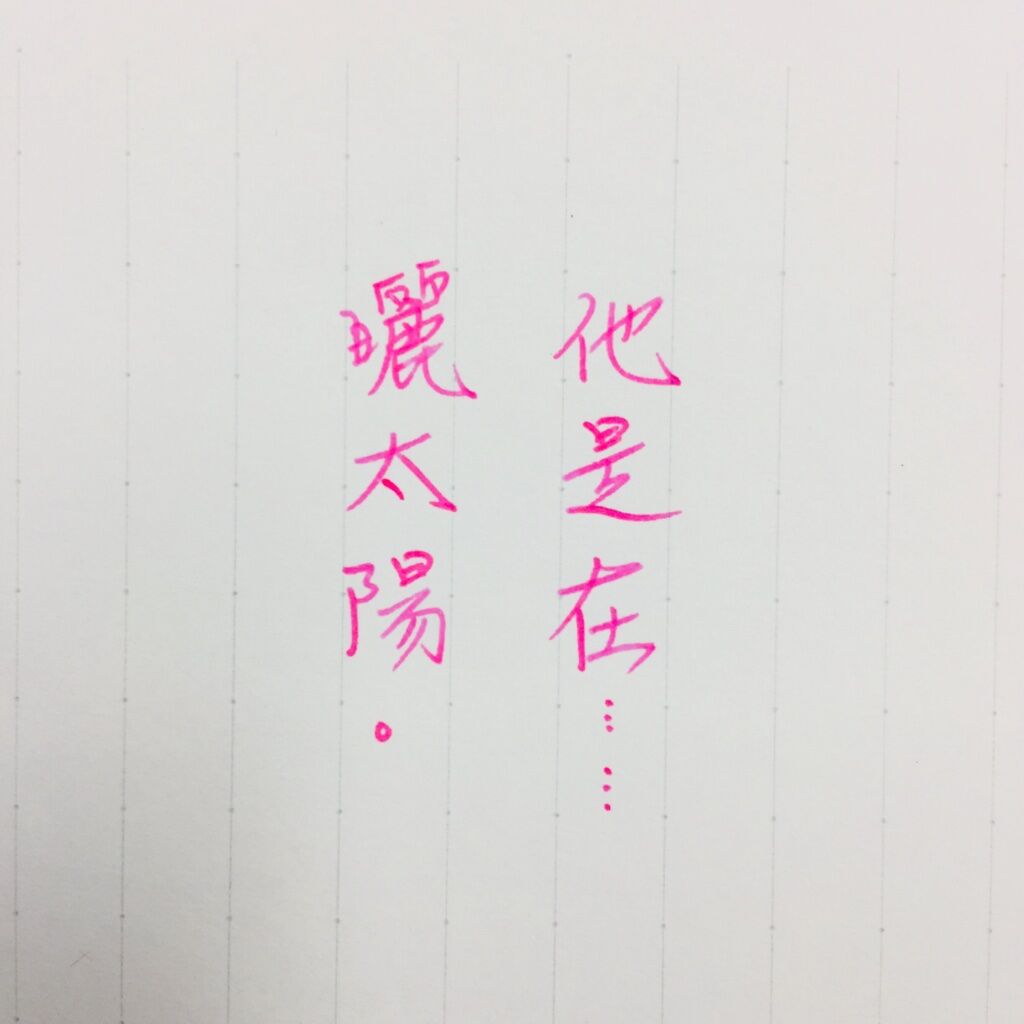 他是在……
曬太陽。